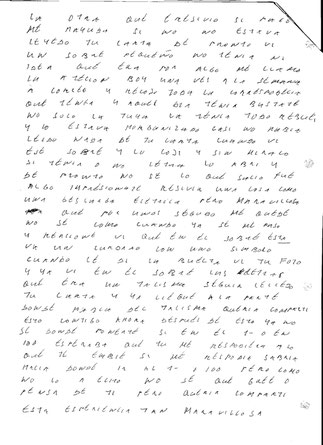 LA OTRA QUE RESIVIO SI MARO
ME AYUDA SI NO NO ESTAVA
LEYEDO TU CARTA DE PRONTO VI
UN SOBRE PEQUEÑO NO TENIA NI
IDEA QUE ERA POR ALGO ME LLAMO
LA ATECION BOY UNA VES A LA SEMANA
A CORREO Y RECOJO TODA LA CORRESPODECIA
QUE TENGA Y AQUEL DIA TENIA BUSTATE
NO SOLO LA TUYA LA TENIA TODO REBUEL
Y YO ESTAVA CASI NO HABIA
LEIDO NADA DE TU CARTA CUANDO VI
ESTE SOBRE Y LO COJI Y SIN MIRARLO
SI TENIA O NO LETRA LO ABRI Y
DE PRONTO NO SE LO QUE SALIO FUE
ALGO IMPRESIONATE RESIVIA UNA COSA COMO
UNA DESCARGA ELETRICA PERO MARAVILLOSA
QUE POR UNOS SEGUDO ME QUEDE
NO SE COMO CUANDO YA SE ME PASO
Y REASIONE VI QUE EN EL SOBRE ESTA
VA UN CUADRADO CON UNO SIMBOLO
CUANDO LE DI LA BUELTA VI TU FOTO
Y YA VI EN EL SOBRE LAS LETRAS
QUE ERA UN TALISMA SEGUIA LEYEDO
TU CARTA Y YA LLEGUE A LA PARTE
DONDE HABLA DEL TALISMA QUERIA COMPARTI
ESTO CONTIGO AHORA DESPUES DE ESTA YA NO
SE DONDE PONERTE SI EN EL 1-0 EN
100 ESPERABA QUE TU ME RESPODIERA A LO
QUE TE EMBIE SI ME RESPODIA SABRIA
HACIA DONDE IA AL 1- O 100 PERO COMO
NO LO A ECHO NO SE QUE
PENSA DE TI PERO QUERIA COMPARTI
ESTA ESPERIENCIA TAN MARAVILLOSA